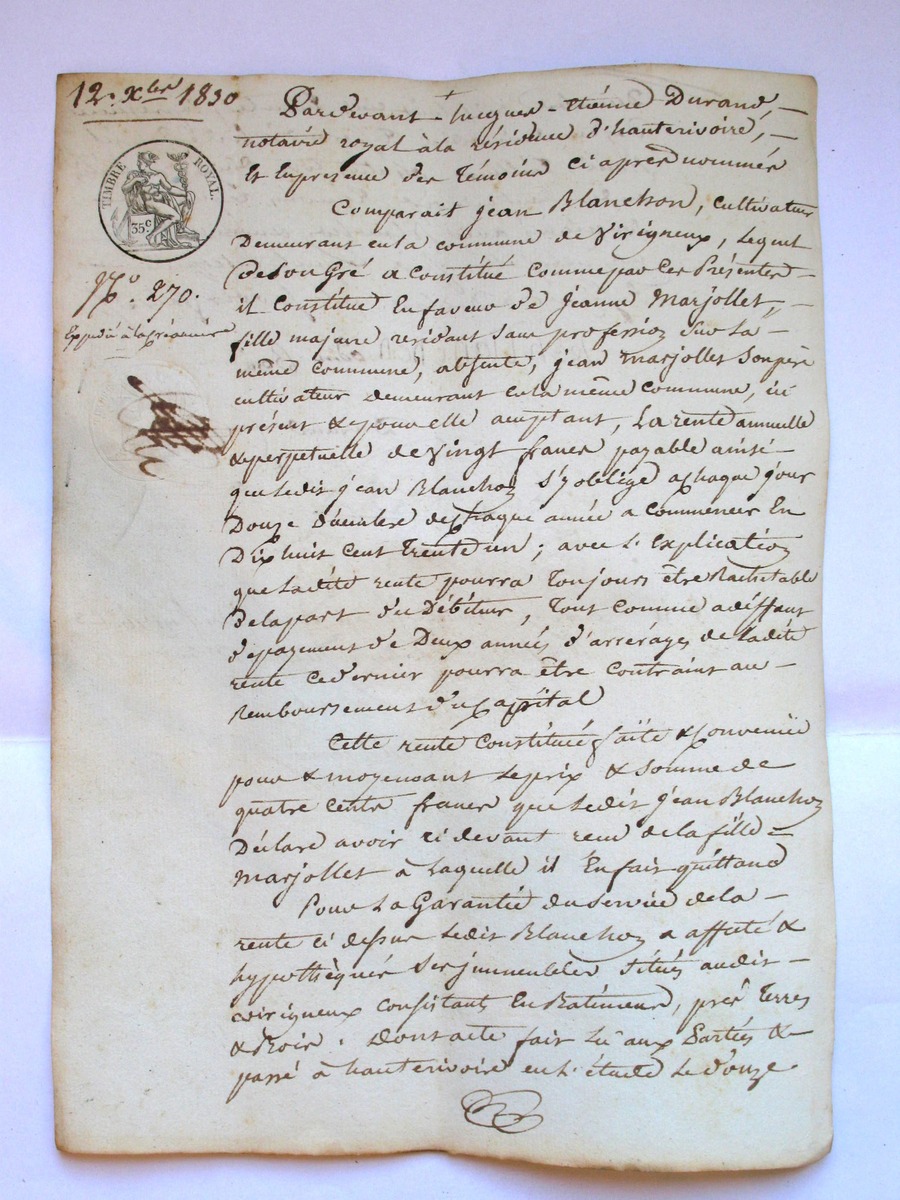 12. Xbre 1830
TIMBRE ROYAL.
35c
N.º 270.
Expédié à la créancière
Pardevant Jacques-Etiénne Durand,
notaire royal à la résidence d'hauterivoire,
Et en presence des Témoins ci après nommés
Comparait jean Blanchon, cultivateur
Demeurant en la commune de Virigneux, Lequel
De son Gré a constitué comme par ces Présentes
il constitue En faveur de jeanne Marjollet,
fille majeure residant sans profession Sur La
même commune, absente, jean marjollet Son père
cultivateur demeurant en la même commune, ici
présent & pour elle acceptant, La rente annuelle
& perpetuelle de Vingt francs payable ainsi
que Ledit jean Blanchon S'y oblige a chaque jour
Douze décembre de chaque année a commencer En
Dix huit cent trente un ; avec L'Explication
que Ladite rente pourra toujours être Rachetable
De la part du Débiteur, Tout comme a deffaut
de payement de Deux années d'arrérages de Ladite
rente ce dernier pourra être contraint au
Remboursement du capital
Cette rente Constituée faite & convenüe
pour & moyennant Le prix & Somme de
quatre cents francs que Ledit jean Blanchon
Déclare avoir ci devant recu de la fille
Marjollet à Laquelle il En fait quittance
Pour La Garantie du Service de la
rente ci dessus Ledit Blanchon a affecté &
hypothéqué Ses immeubles Situés audit
virigneux consistant En Batiments, prés Terres
& Bois. Dont acte fait Lu aux Parties &
passé à hauterivoire en L'étude Le Douze